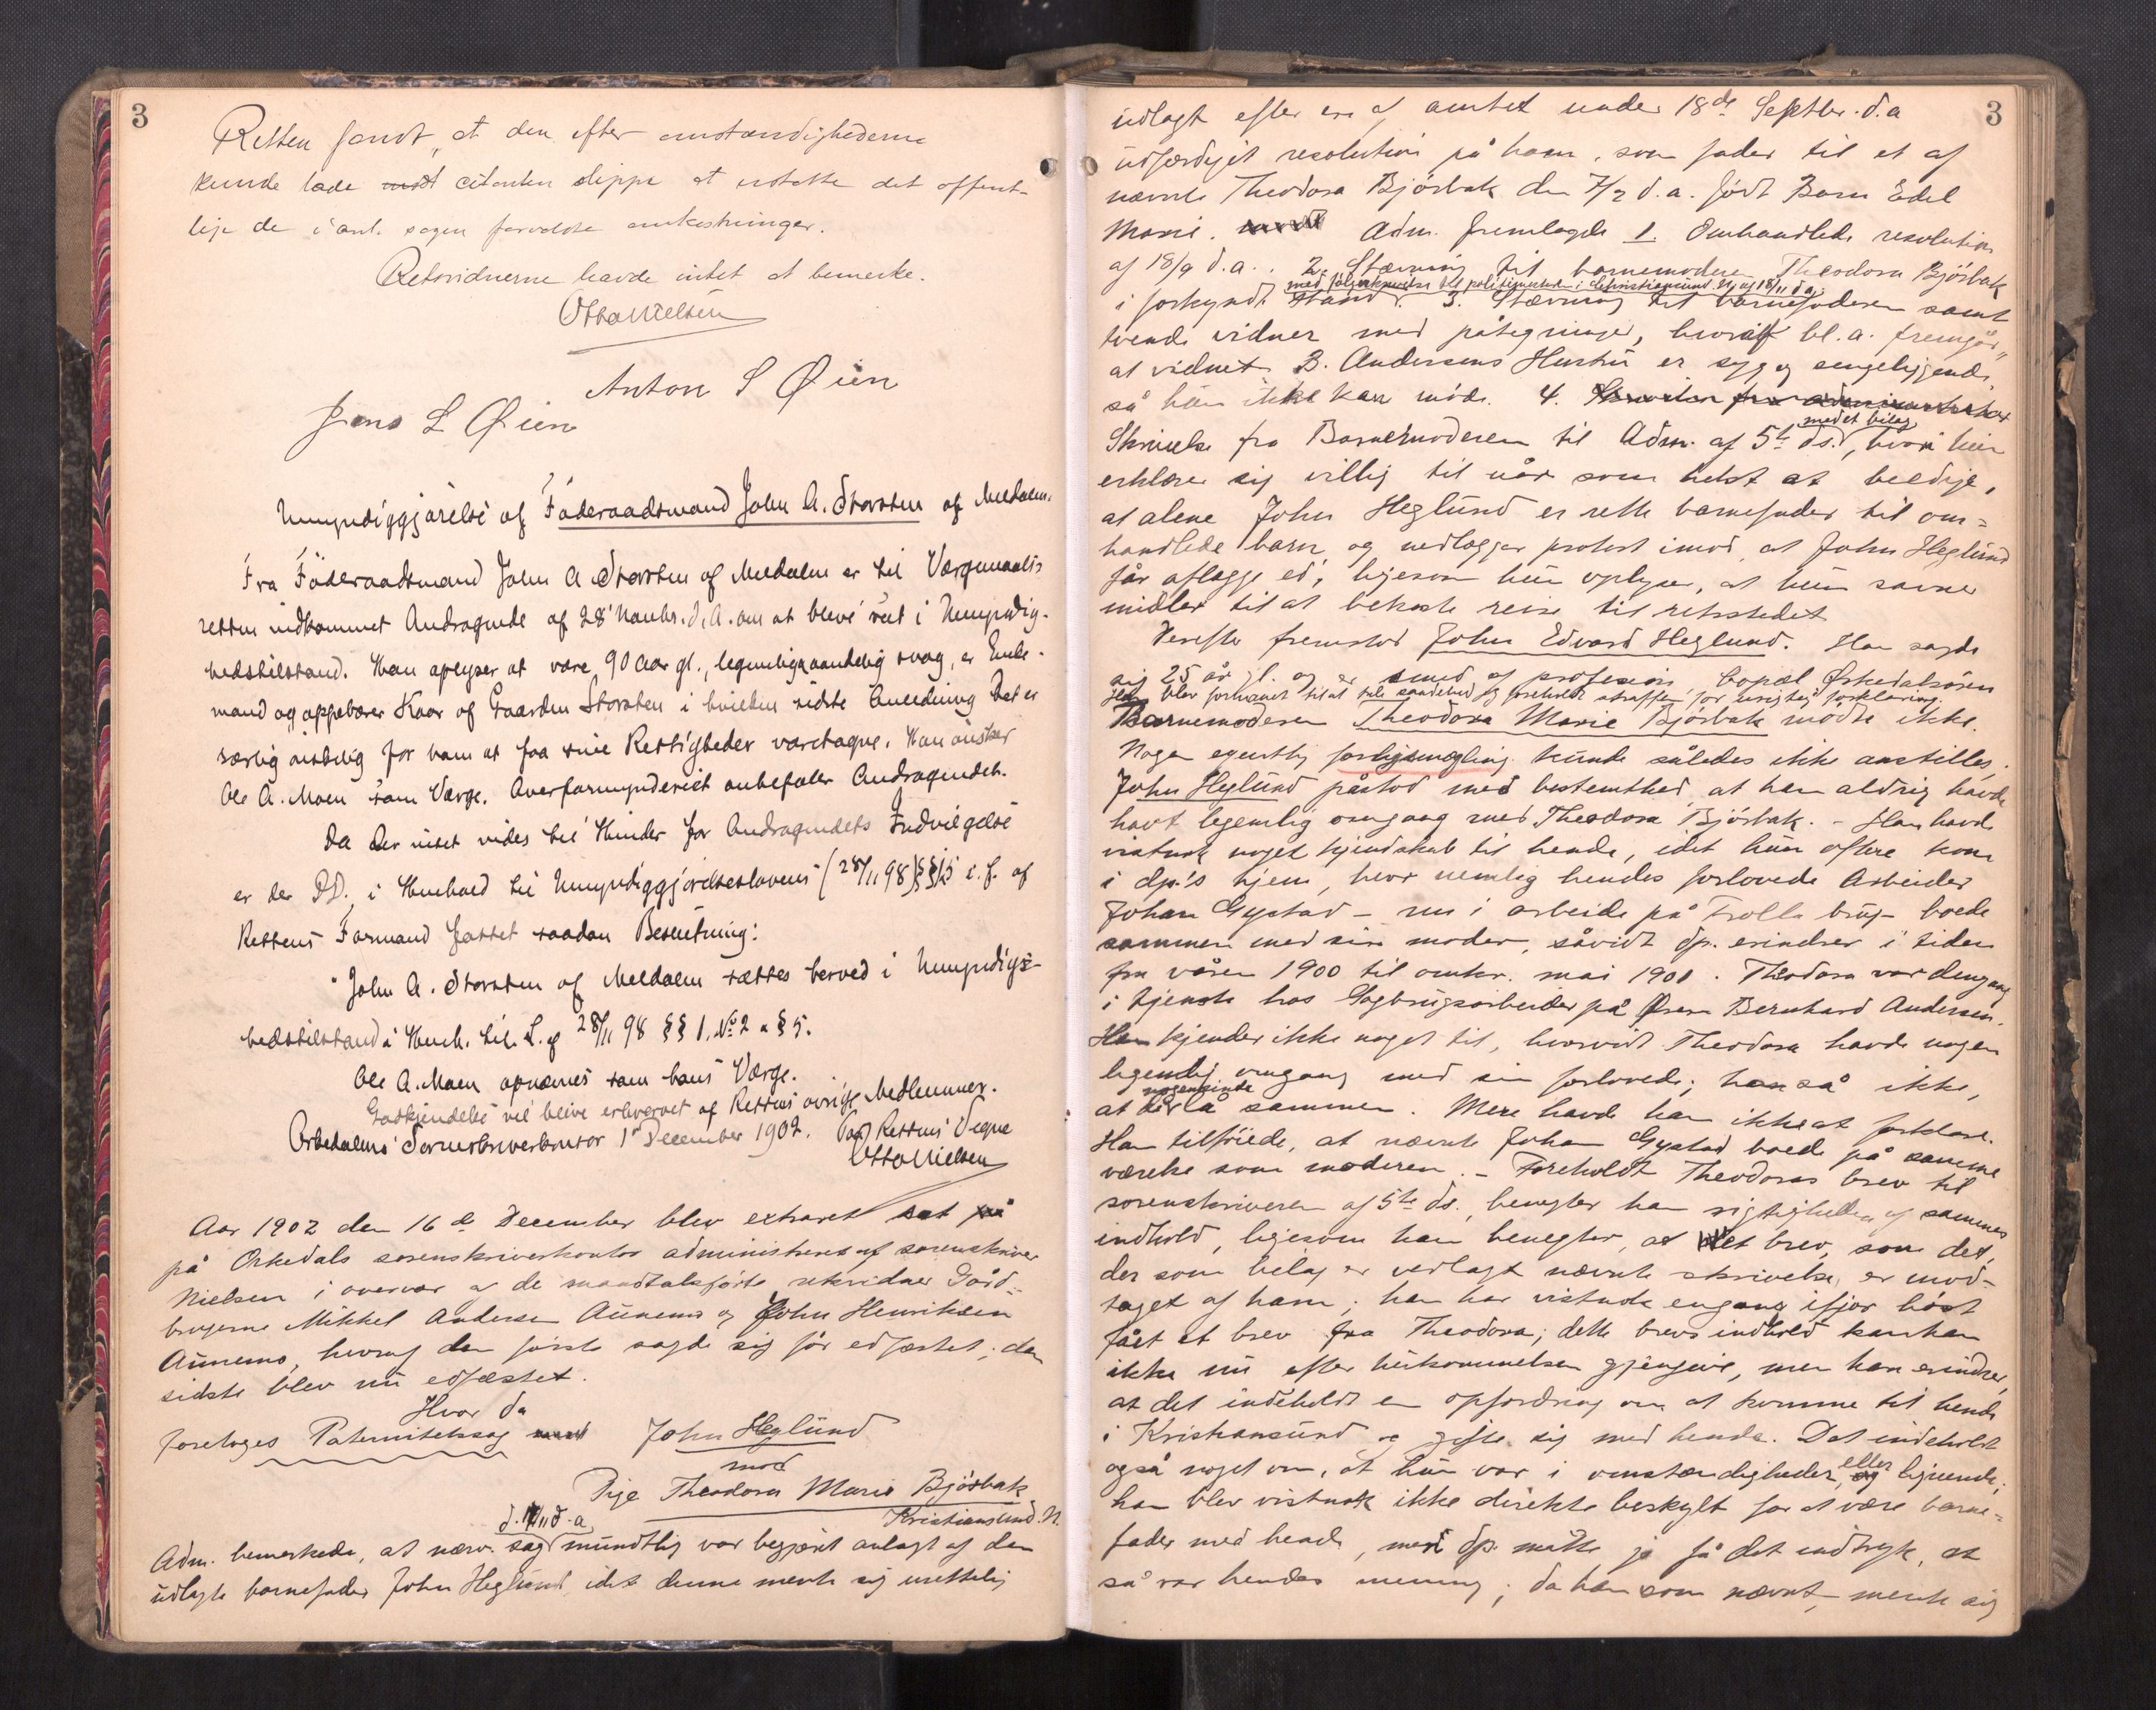 3
Retten fandt, at den efter omstændighederne
kunde lade citanten slippe at erstatte det offent-
lige de i anl. sagen forvoldte omkostninger.
Retsvidnerne havde intet at bemerke.
Otto Nielsen
Anton S Øien
Jens L Øien
Umyndiggjørelse af Føderaadsmand John A. Storsten af Meldalen.
Fra Føderaadsmand John A Storsten af Meldalen er til Værgemaals-
retten indkommet Andragende af 28' Novbr. d. A. om at blive sat i Umyndig-
hedstilstand. Han oplyser at være 90 Aar gl., legemlig & aandelig svag, er Enke-
mand og oppebærer Kaar af Gaarden Storsten i hvilken sidste Anledning det er
særlig ønskelig for ham at faa sine Rettigheder varetagne. Han ønsker
Ole A. Moen som Værge. Overformynderiet anbefaler Andragendet.
Da der intet vides til Hinder for Andragendets Indvilgelse
er der P.D. i Henhold til Umyndiggjørelseslovens (28/11 98) §§ 1, 5 c. f. af
Rettens Formand fattet saadan Beslutning:
"John A. Storsten af Meldalen sættes herved i Umyndigs-
hedstilstand i Henh. til L. af 28/11 98 §§ 1, No 2 & § 5.
Ole A. Moen opnævnes som hans Værge.
Godkjendelse vil blive erhvervet af Rettens øvrige Medlemmer.
Orkedalens Sorenskriverkontor 1ste December 1902. Paa Rettens Vegne
Otto Nielsen
Aar 1902 den 16de December blev extraret sat på
på Orkedals sorenskriverkontor administreret af sorenskriver
Nielsen i overvær af de mandtalsførte retsvidner Gård-
brugerne Mikkel Andersen Aunemo og John Henriksen
Aunemo, hvoraf den første sagde sig før edfæstet; den
sidste blev nu edfæstet.
Hvor da
foretoges Paternitetssag John Heglund
mod
Pige Theodora Marie Bjøsbak
d. /11 d. a Kristiansund. N.
Adm. bemerkede, at nærv. sag mundtlig var begjært anlagt af den
udlagte barnefader John Heglund, idet denne mente sig urettelig
3
udlagt efter en af amtet under 18de Septbr. d. a
udfærdiget resolution på ham, som fader til et af
nævnte Theodora Bjøsbak den 7/2 d. a. født Barn Edel
Marie. Adm. fremlagde 1. Omhandlede resolution
af 18/9 d. a.. 2. Stævning til barnemoderen Theodora Bjøsbak
med følgeskrivelse til politimesteren i Christiansund N af 18/11 d a,
i forkyndt stand. 3. Stævning til barnefaderen samt
tvende vidner med påtegninger, hvoraf bl. a. fremgår,
at vidnet B. Andersens Hustru er syg og sengeliggende,
så hun ikke kan møde. 4.
med et bilag
Skrivelse fra Barnemoderen til Adm. af 5te ds., hvori hun
erklærer sig villig til når som helst at beedige,
at alene John Heglund er rette barnefader til om=
handlede barn, og nedlægger protest imod, at John Heglund
får aflægge ed, ligesom hun oplyser, at hun savner
midler til at bekoste reise til retsstedet
Derefter fremstod John Edvard Heglund. Han sagde
sig 25 år gl. og er smed af profession bopæl Orkedalsøren
blev formanet til at tale sandhed og foreholdt straffen for urigtig forklaring.
Barnemoderen Theodora Marie Bjøsbak mødte ikke.
Nogen egentlig forligsmægling kunde således ikke anstilles.
John Heglund påstod med bestemthed, at han aldrig havde
havt legemlig omgang med Theodora Bjøsbak. – Han havde
vistnok noget kjendskab til hende, idet hun oftere kom
i dp.'s hjem, hvor nemlig hendes forlovede Arbeider
Johan Gystad – nu i arbeide på Trolla brug – boede
sammen med sin moder, såvidt dp. erindrer i tiden
fra våren 1900 til omkr. mai 1901. Theodora var dengang
i tjeneste hos Sagbrugsarbeider på Øren Bernhard Andersen.
Han kjender ikke noget til, hvorvidt Theodora havde nogen
legemlig omgang med sin forlovede; han så ikke,
nogensinde
at de lå sammen. Mere havde han ikke at forklare.
Han tilføiede, at nævnte Johan Gystad boede på samme
værelse som moderen. – Foreholdt Theodoras brev til
sorenskriveren af 5te ds., benegter han rigtigheden af sammes
indhold, ligesom han benegter, at et brev, som det,
der som bilag er vedlagt nævnte skrivelse, er mod-
taget af ham; han har vistnok engang ifjor høst
fået et brev fra Theodora; dette brevs indhold kan han
ikke nu efter hukommelsen gjengive, men han erindrer,
at det indeholdt en opfordring om at komme til hende
i Kristiansund og gifte sig med hende. Det indeholdt
også noget om, at hun var i omstændigheder eller lignende;
han blev vistnok ikke direkte beskyldt for at være barne=
fader med hende, men dp. måtte jo få det indtryk, at
så var hendes mening; da han som nævnt mente sig